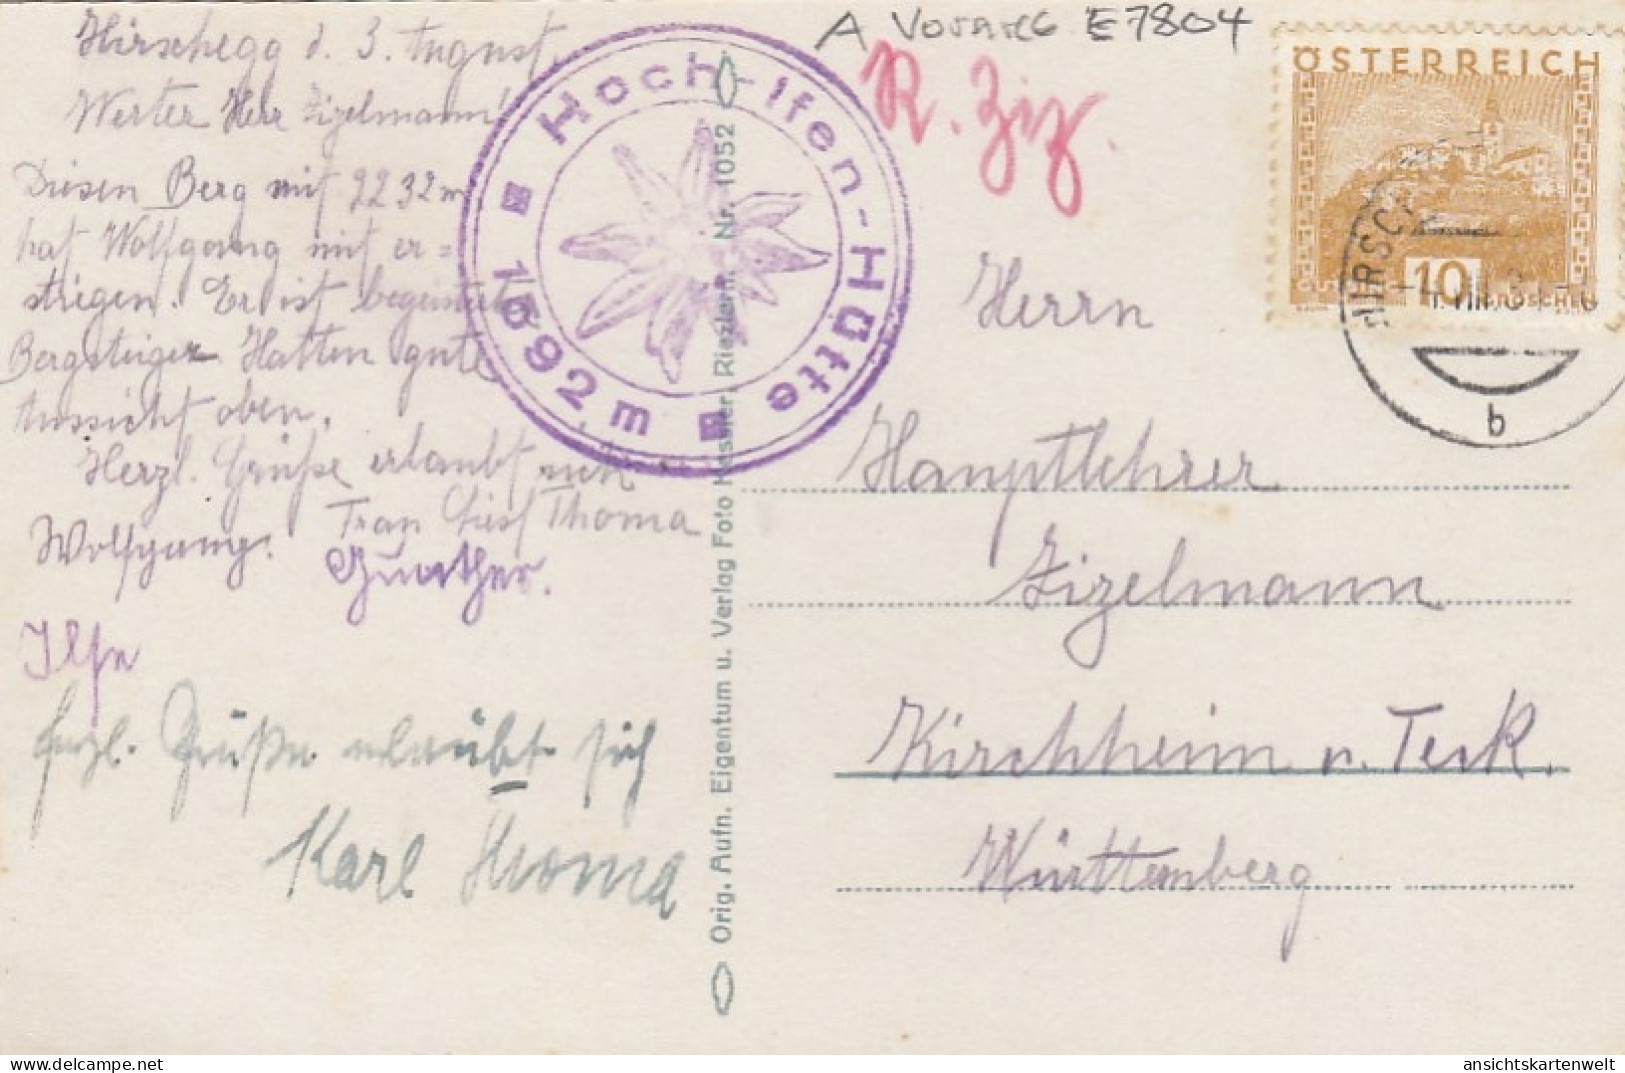 Hirschegg d. 3. August.
Werter Herr Zizelmann!
Diesen Berg mit 2232 m
hat Wolfgang mit er=
stiegen. Er ist begeistert
Bergsteiger. Hatten gute
Aussicht oben.
Herzl. Grüße erlaubt sich
Frau Thoma
Wolfgang.
Günther.
Ilse
herzl. Grüße erlaubt sich
Karl Thoma
Hoch-Ifen-Hütte
1592 m
Orig. Aufn. Eigentum u. Verlag Foto Kessler, Riezlern. Nr. 1052
A VORARLG E7804
R. Ziz.
ÖSTERREICH
10 GROSCHEN
HIRSC
b
Herrn
Hauptlehrer
Zizelmann
Kirchheim u. Teck.
Württemberg
ansichtskartenwelt